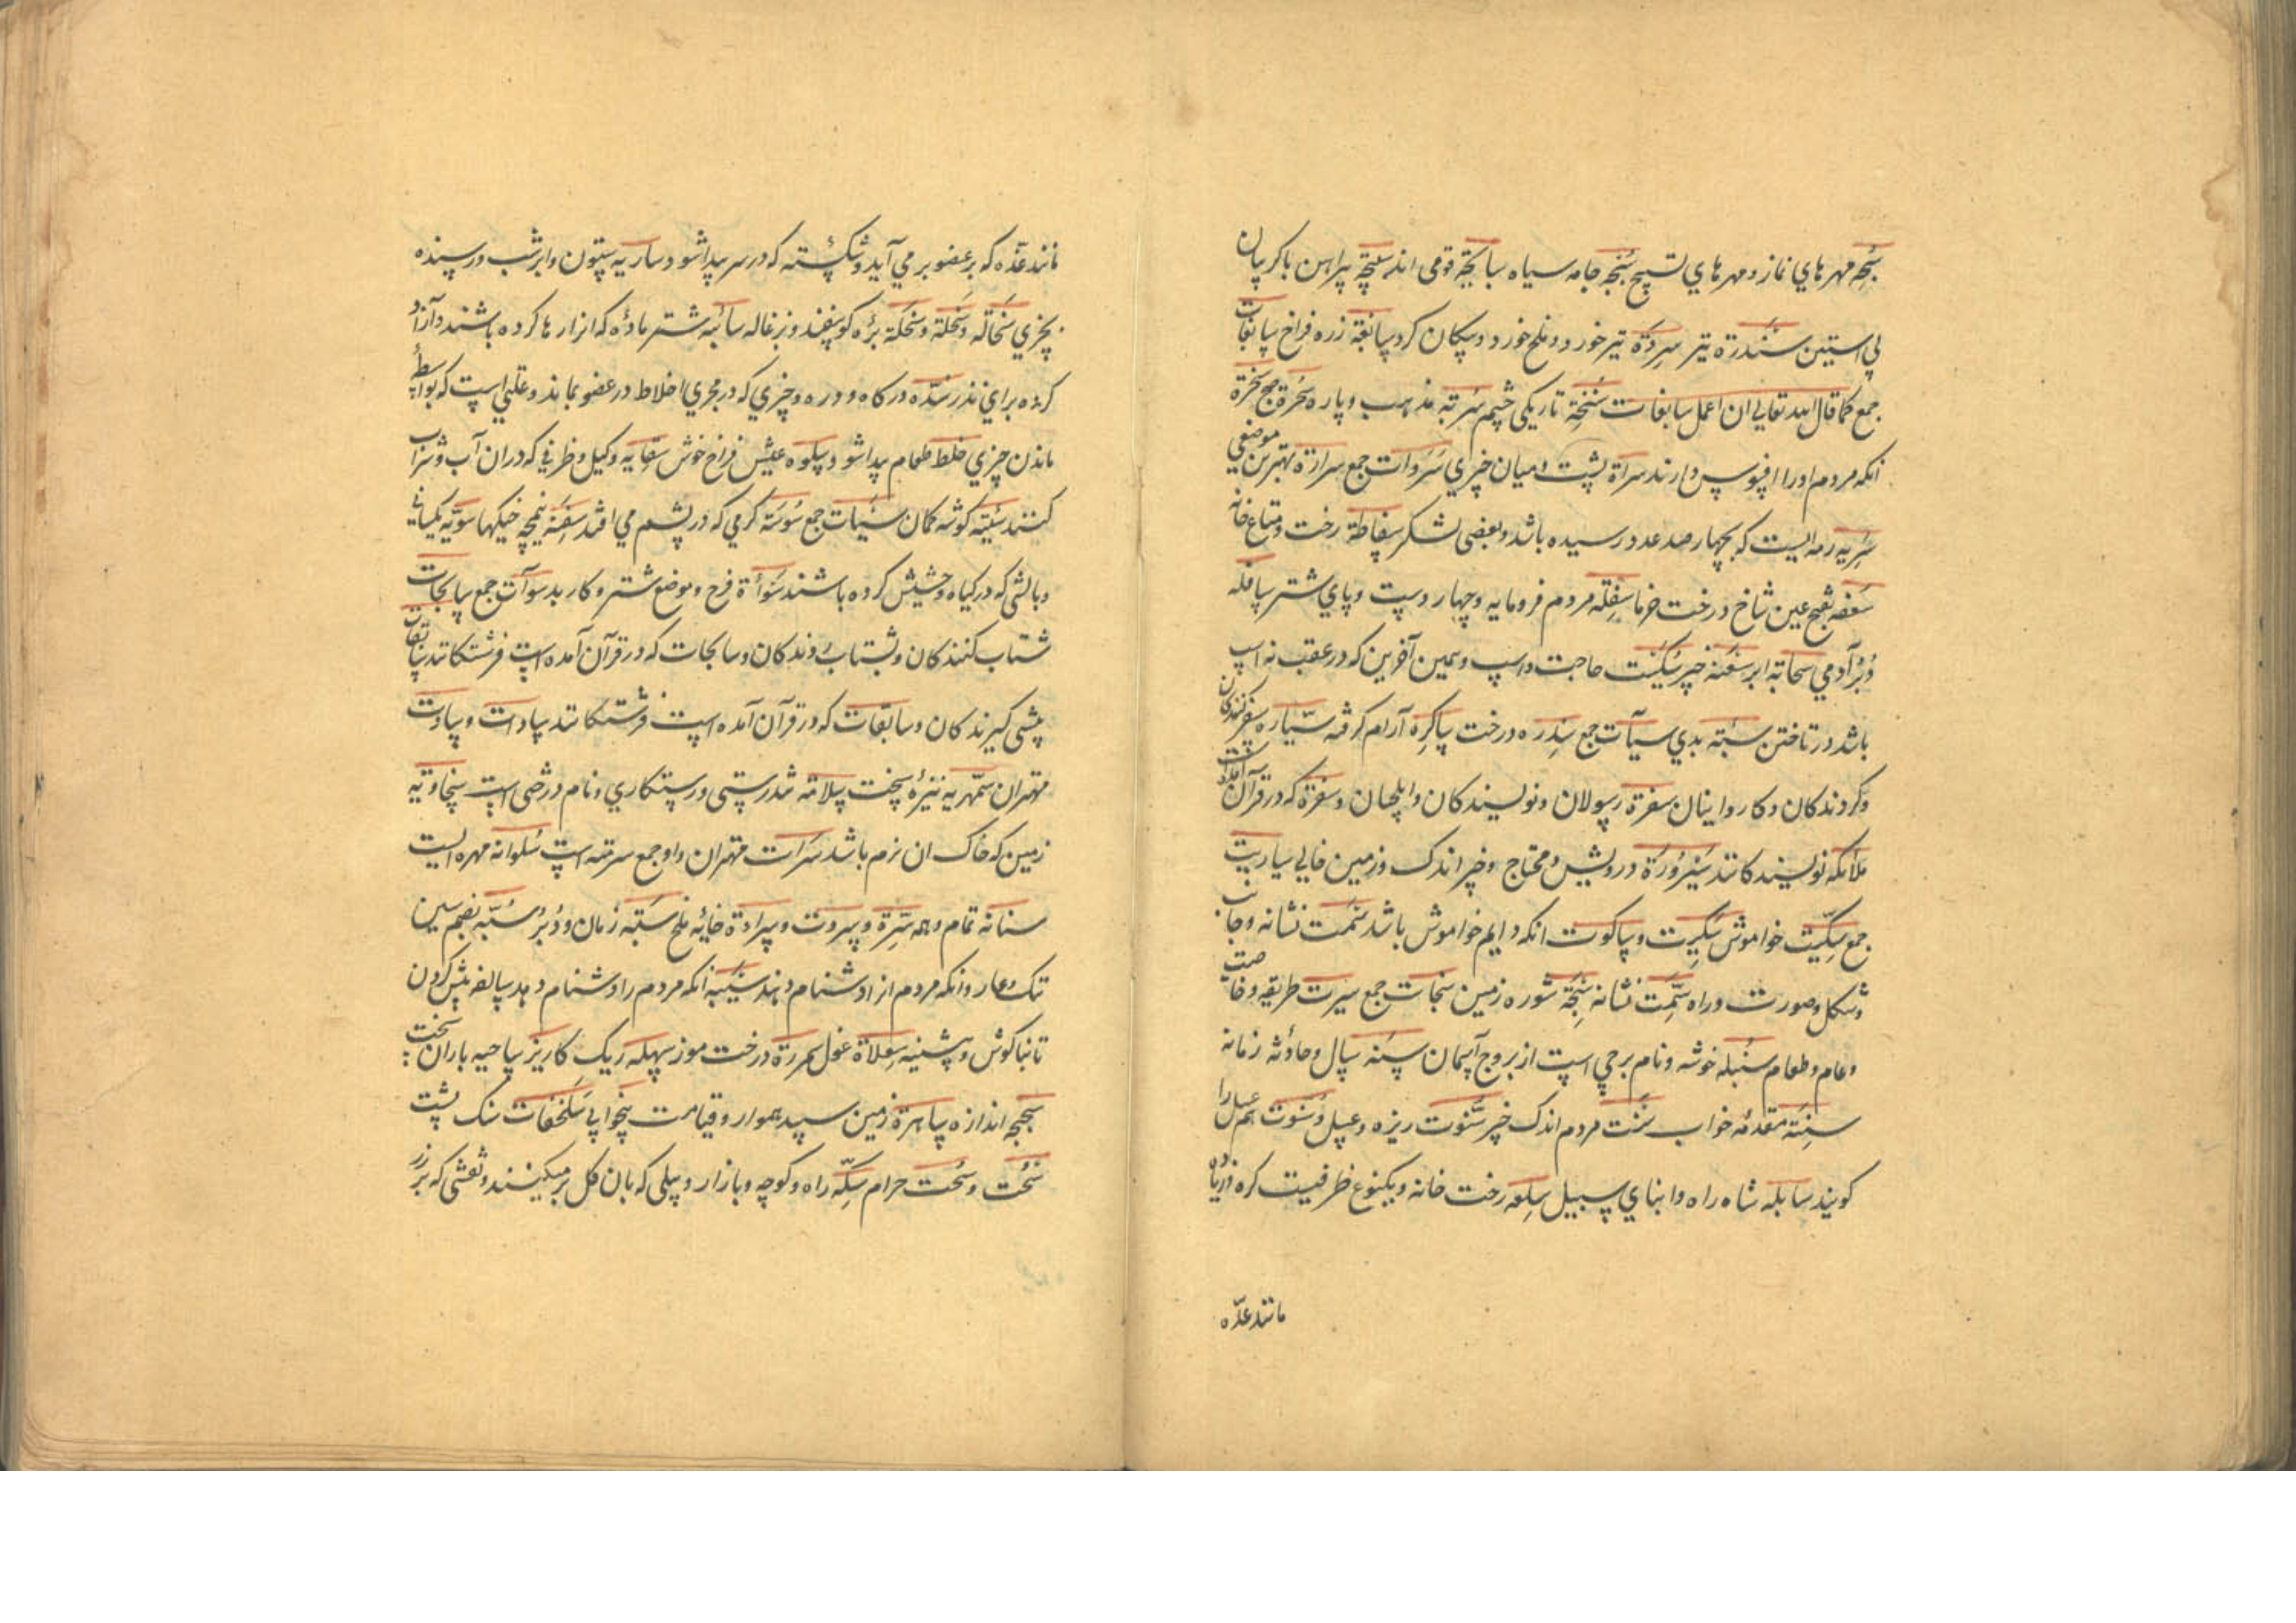 سُبحه مهرهاي نماز و مهرهاي تسبيح سُبجه جامه سياه سبابجة قومى اند سبيجة پيراهن با كريبان
بي استين سَندَرَة تير سِردَة تير خورد و ملخ خورد و پيكان كرد سابغة زره فراخ سابغات
جمع كما قال الله تعالى ان اعمل سابغات سُنخِة تاريكى چشم سُربَة مذهب و پاره سُخرة جمع سَخَرة
انكه مردم او را افسوس دارند سراة پشت و ميان چيزي سَرَوات جمع سرارة بهترين موضعى
سَرِيه رمه ايست كه بچهار صد عدد رسيده باشد و بعضى لشكر سقاطة رخت و متاع خانه
سَعفه بفتح عين شاخ درخت خرما سِفله مردم فرومايه و چهار دست و پاي شتر سافله
دُبُر آدمي سحابة ابر سَعنه خير سُكَيت حاجت و اسپ و پسين آخرين كه در عقب نه اسپ
باشد در تاختن سيّئه بدي سيآت جمع سِدره درخت ساكِره آرام كرفته سيّاره سفر كنندكان
و كردندكان و كاروانيان سفرة رسولان و نويسندكان و ايلچيان و سفرة كه در قرآن آمده است
ملائكه نويسندكانند سُبرُورَة درويش و محتاج و خير اندك و زمين خالي سباريت
جمع سِكّيت خواموش سَكِيت و ساكوت انكه دايم خواموش باشد سَمت نشانه و جانب
و شكل و صورت و راه سِمَت نشانه سَبخَة شوره زمين سبخات جمع سيرت طريقه و خاصيت
و عام و طعام سُنبله خوشه و نام برجي است از بروج آسمان سَنَه سال و حادثه زمانه
سِنَة مقدمهٔ خواب سَنت مردم اندك خير سَنّوت زيره و عسل و سَنَوت هم عسل را
كويند سابله شاه راه و ابناي سبيل سِلعه رخت خانه و يكنوع ظرفيست كره و زياده
مانند غدّه
مانند غدّه كه بر عضو بر مي آيد و شكسته كه در سر پيدا شود ساريه ستون و ابر شب و رسنده
بچزي سَخالَه و سَخلَة و سَخلَة برّه كوسفند و بزغاله سائبه شتر مادهٔ كه انرا رها كرده باشند و آزاد
كرده براي نذر سُدّه دركاه و دره و چيزي كه در مجري اخلاط در عضو بماند و علتي است كه بواسطهٔ
ماندن چيزي غلط طعام پيدا شود سلوه عيش فراخ خوش سِقايه و كيل و ظرفي كه در ان آب و شراب
كنند سيَة كوشه كمان سِيات جمع سُوسَة كرمي كه در پشم مي افتد سفِنَة نيمچه خيكها سويّه يكسانى
و بالشى كه در كياه و حشيش كرده باشند سَوأة فرج و موضع شتر و كار بد سوآت جمع سابحات
شتاب كنندكان و بشتاب روندكان و سابحات كه در قرآن آمده است فرشتكانند سابقات
پيشى كيرندكان و سابقات كه در قرآن آمده است فرشتكانند سادات و سادت
مهتران سَمهريه نيزهٔ سخت سلامه تندرستى و رستكاري و نام درختى است سخاويه
زمين كه خاك ان نرم باشد سَرات مهتران و او جمع سرى است سُلوانه مهره ايست
سنانه تمام و همه سُرّة و سروت و سرادة خايهٔ ملخ سَبّه زمان و دُبُر سُبّه بضم سين
ننك و عار و انكه مردم از او دشنام دهند سُبَبه انكه مردم را دشنام دهد سالفه پيش كردن
تا بناكوش و پشنيه سِعلاة غول سمرة درخت موز سِهله ريك كاريز ساحيه باران سخت
سحجه اندازه ساهرة زمين سپيد هموار و قيامت بيخوابي سَلَحفات سنك پشت
سُحُت و سُحت حرام سِكّه راه و كوچه و بازار و بيلى كه بان كل برميكنند و نقشى كه بر زر